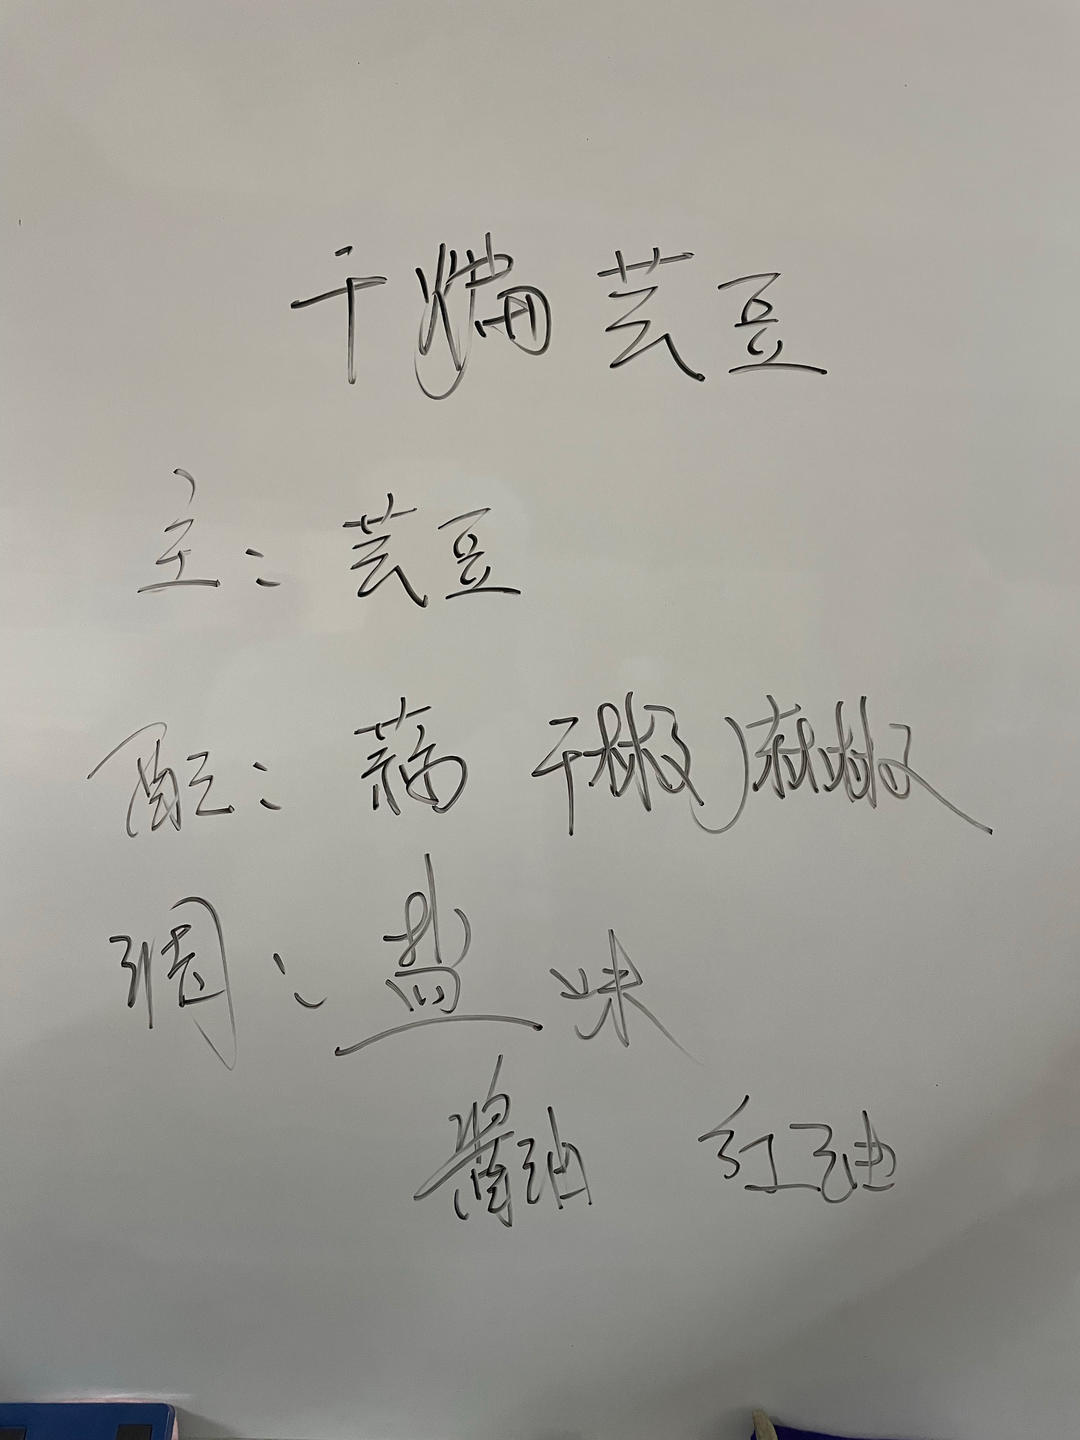 干煸芸豆
主：芸豆
配：蒜 干椒 麻椒
调：盐 味
酱油 红油